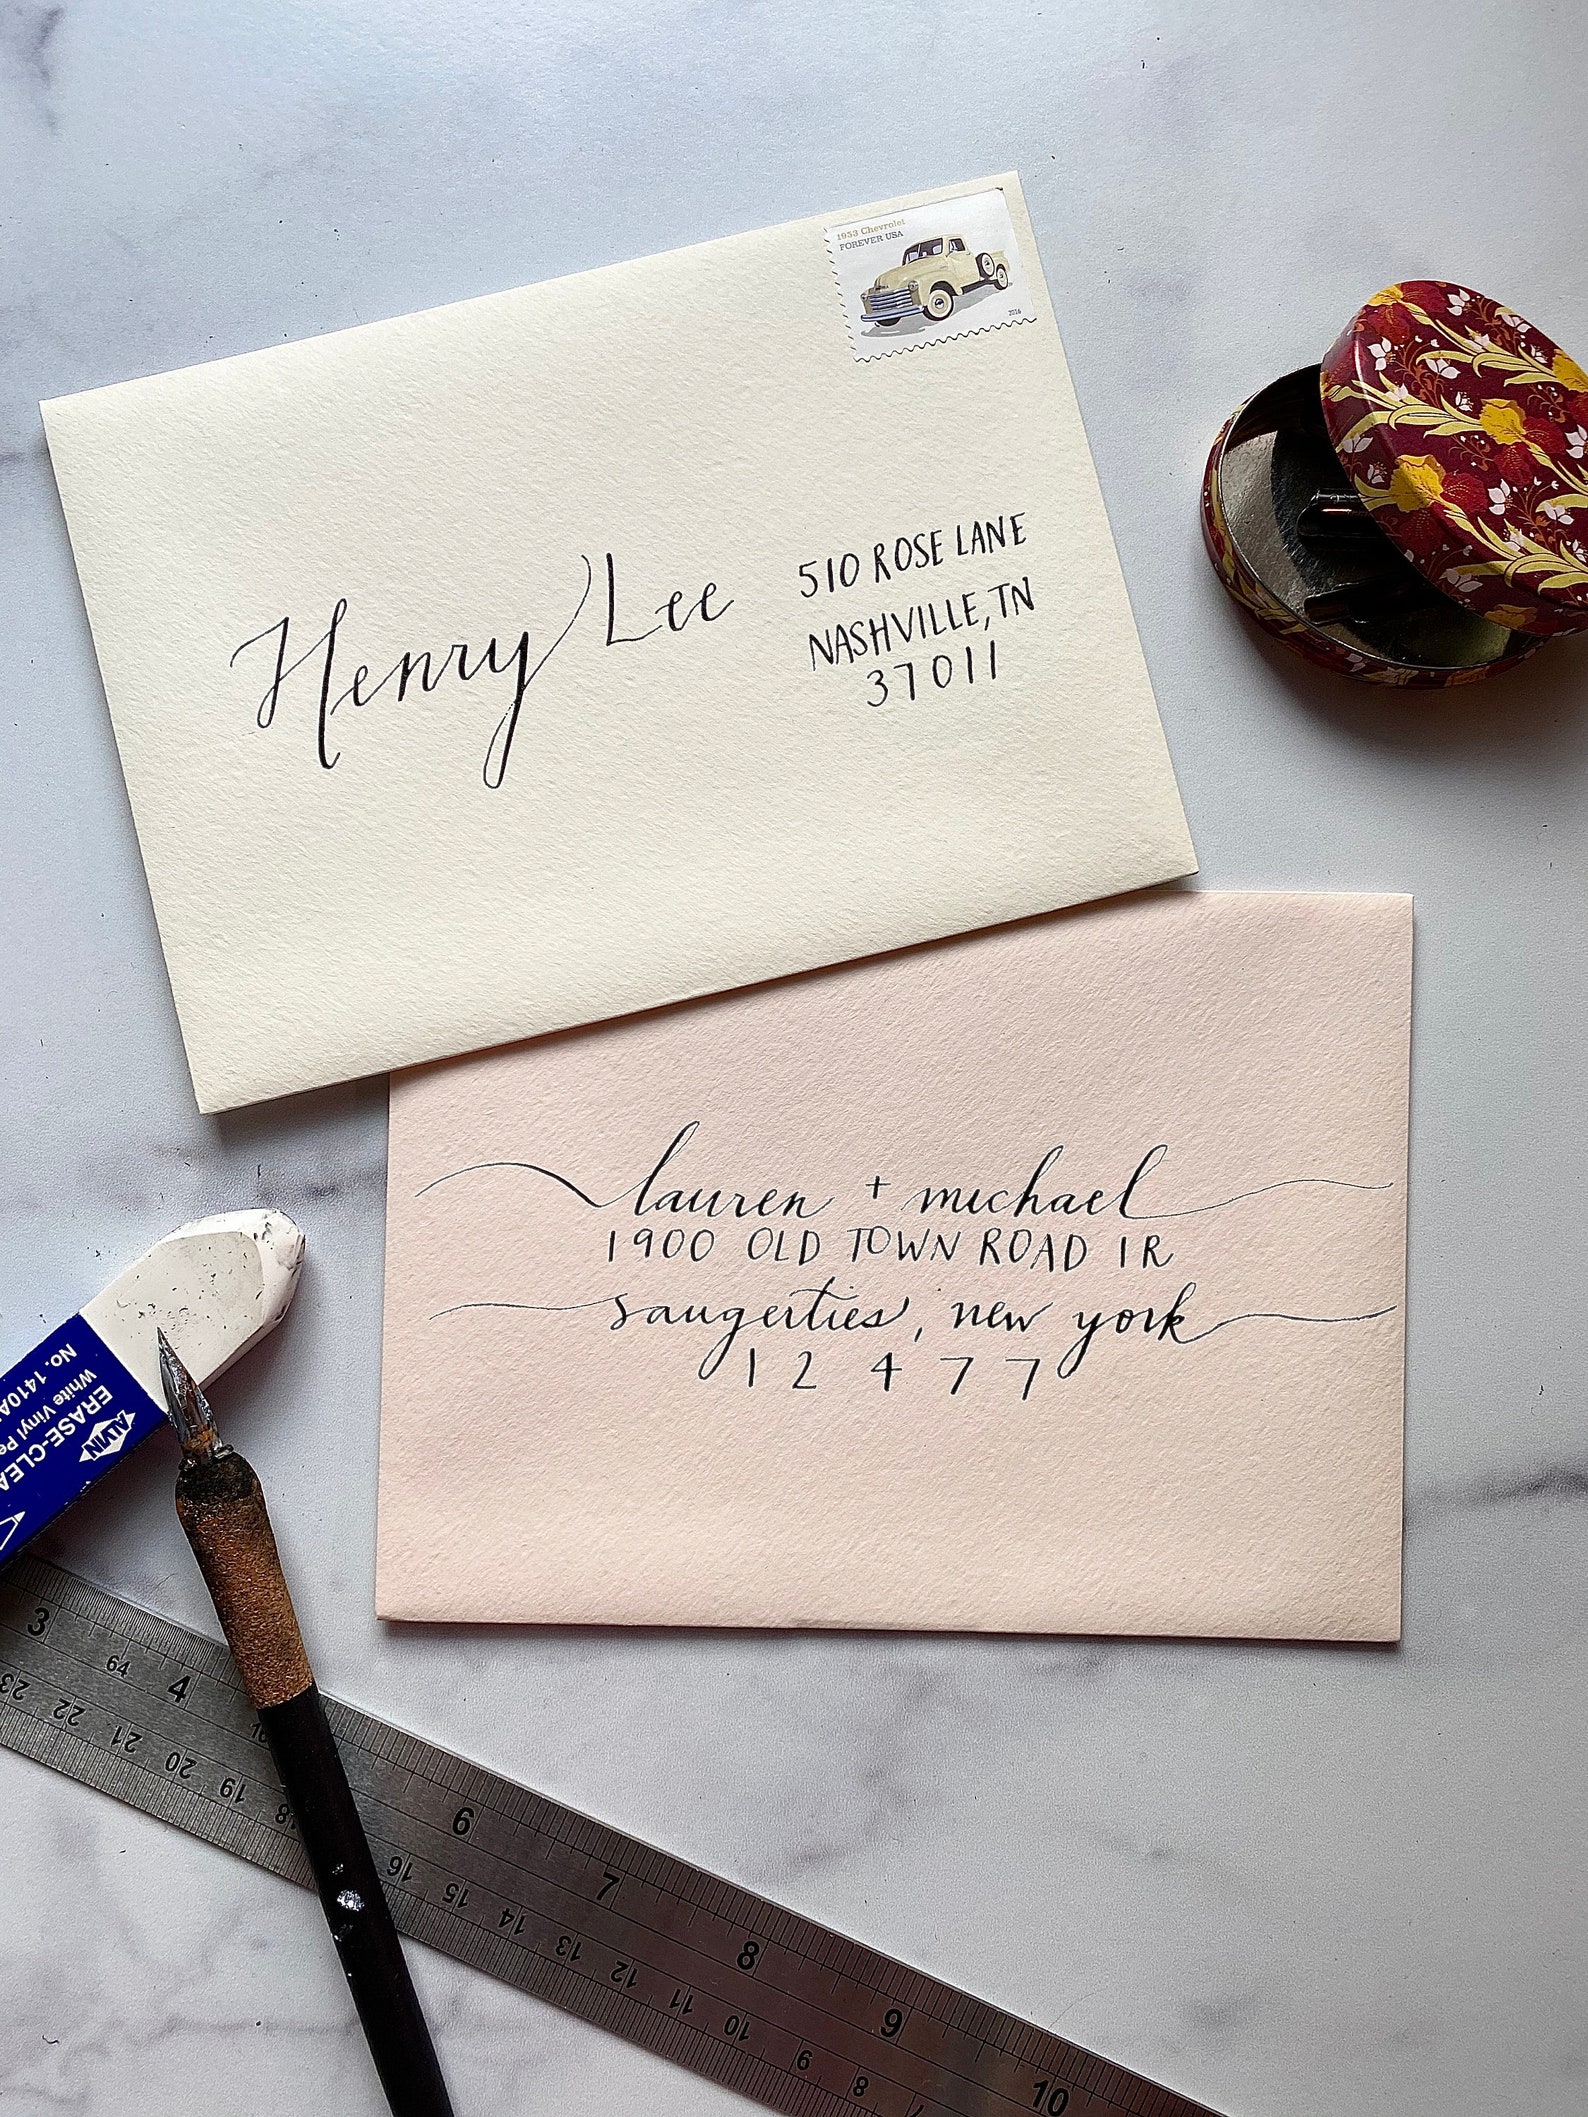 1953 Chevrolet
FOREVER USA
2016
Henry Lee
510 ROSE LANE
NASHVILLE, TN
37011
lauren + michael
1900 OLD TOWN ROAD 1R
saugerties, new york
12477
ALVIN
ERASE-CLEA
White Vinyl Pe
No. 1410A
3 4 6 7 8 9 10
64
23 22 21 20 19 18 16 15 14 13 12 11 10 9 8 7